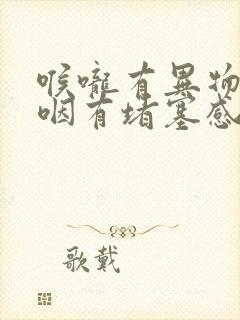 喉嚨有異物
咽有堵塞感
歌戴